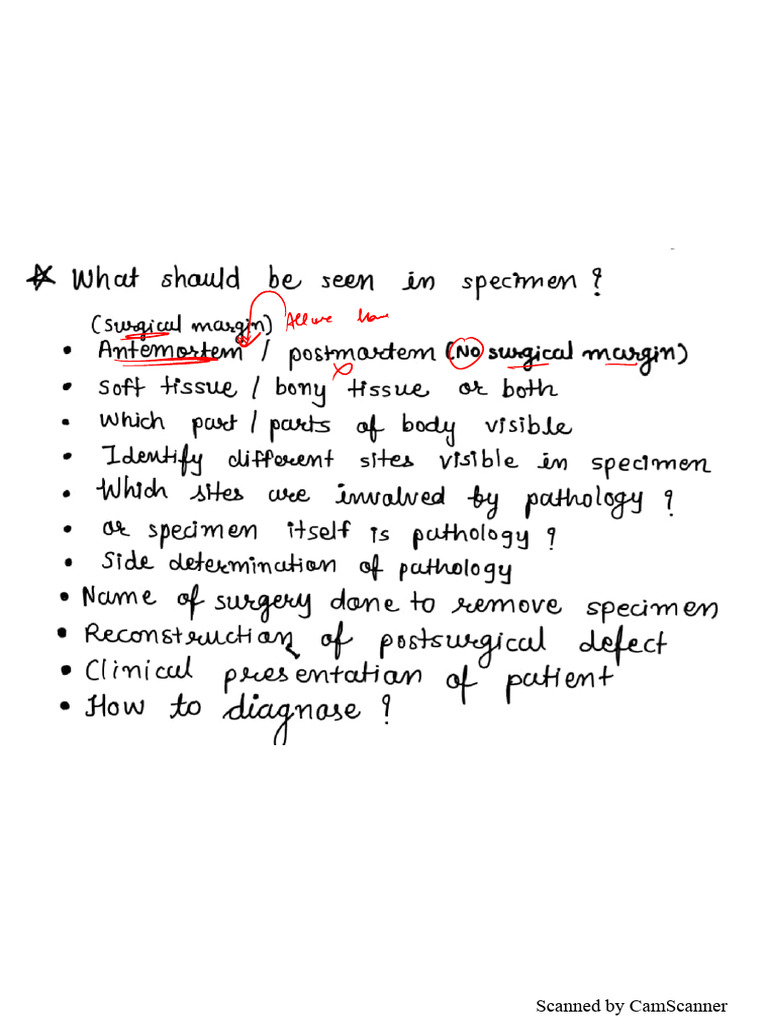 * What should be seen in specimen ?
(surgical margin) All we have
• Antemortem / postmortem (No surgical margin)
x
• soft tissue / bony tissue or both
• which part / parts of body visible
• Identify different sites visible in specimen
• Which sites are involved by pathology ?
• or specimen itself is pathology ?
• Side determination of pathology
• Name of surgery done to remove specimen
• Reconstruction of postsurgical defect
• Clinical presentation of patient
• How to diagnose ?
Scanned by CamScanner